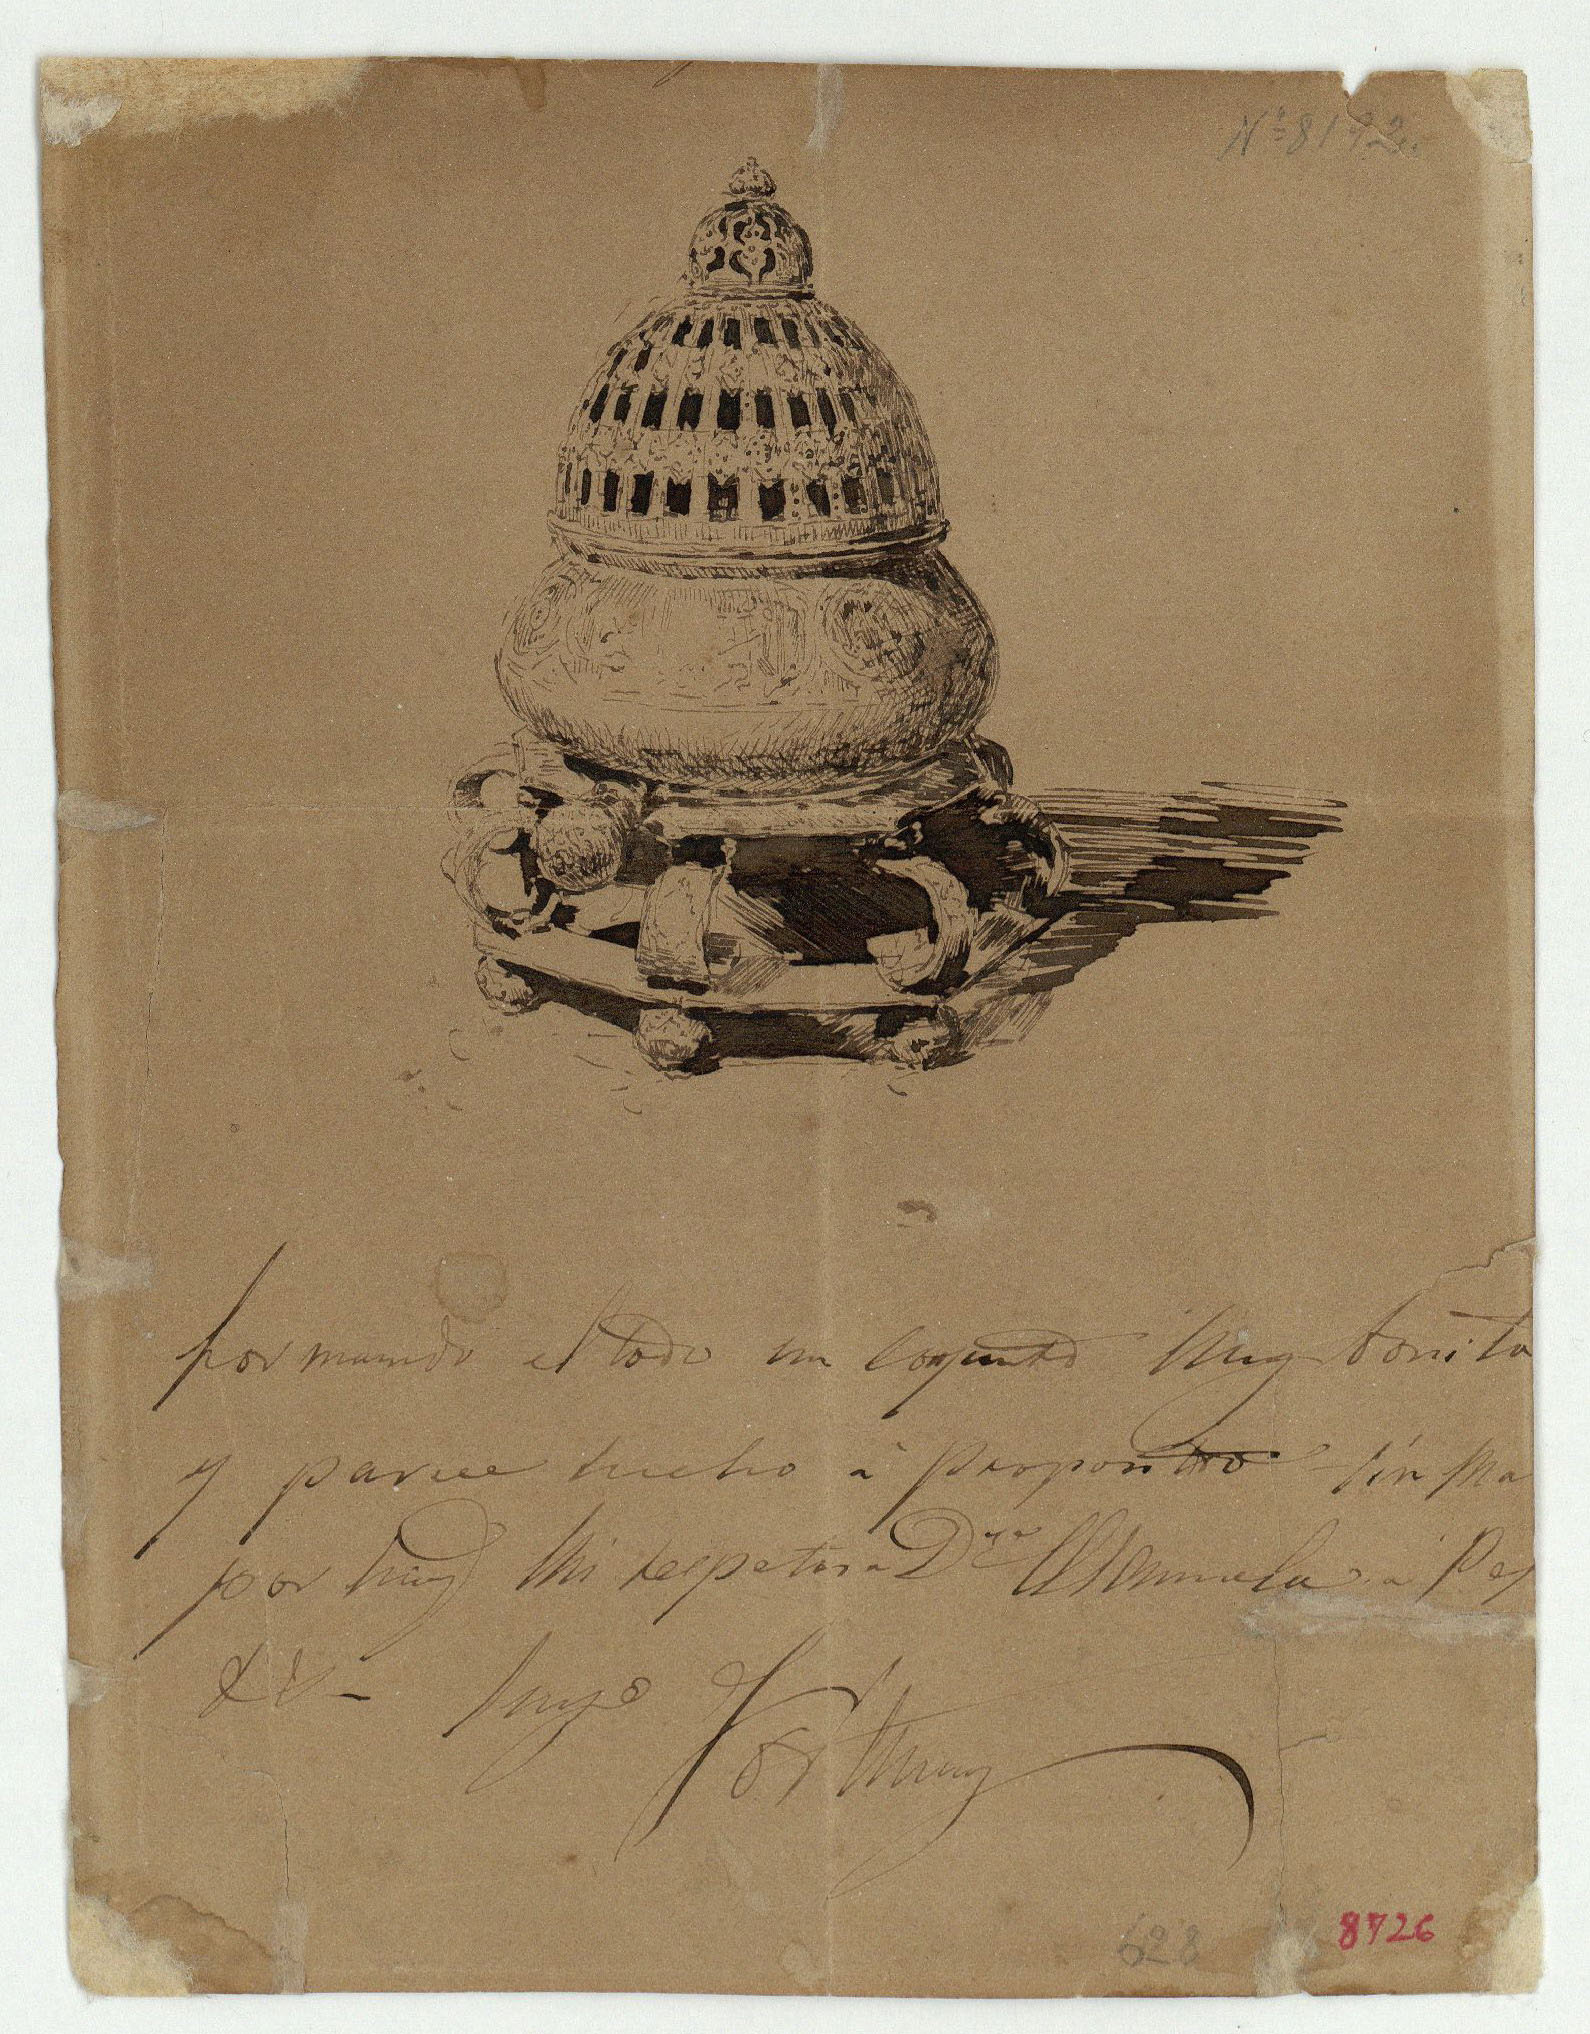 Nº 8172.
formando el todo un conjunto muy bonito
y parece hecho à proposito sin ma
por hay mi respetos a Dña Manuela à Pe
&& suyo Fortuny
628
8726